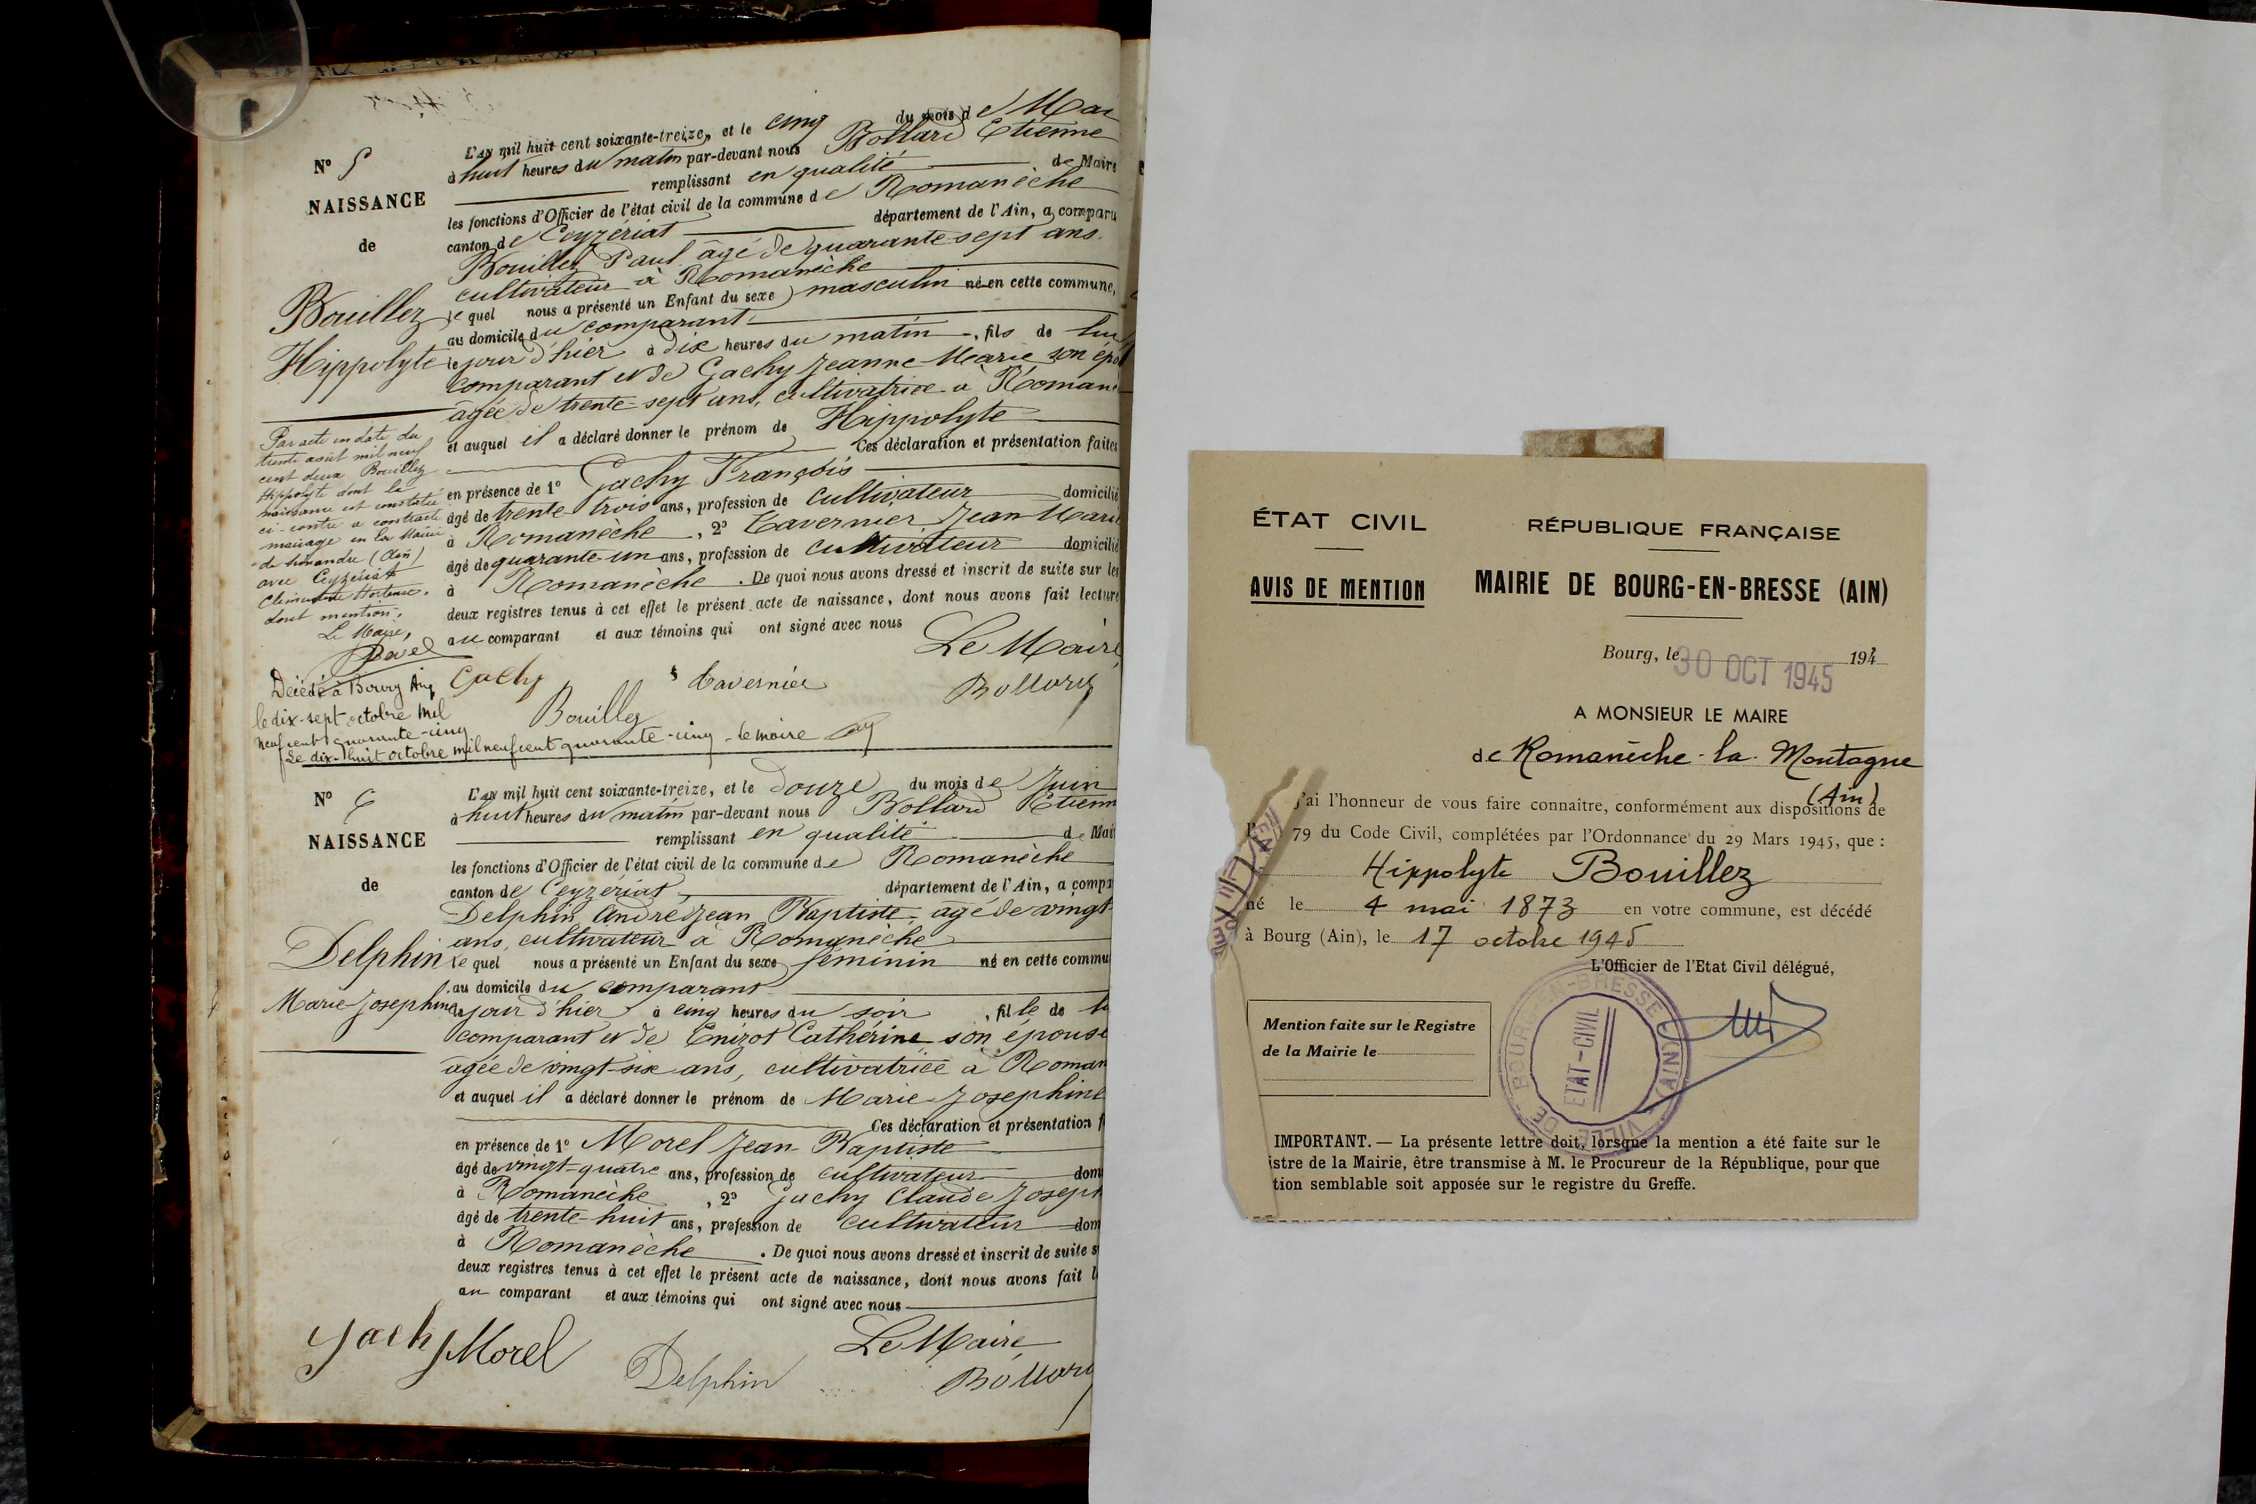 N° 5
NAISSANCE
de
Bouillez
Hippolyte
L'an mil huit cent soixante-treize, et le cinq du mois de Mai
à huit heures du matin par-devant nous Bollard Etienne
remplissant en qualité de Maire
les fonctions d'Officier de l'état civil de la commune de Romanèche
canton de Ceyzériat département de l'Ain, a comparu
Bouillez Paul âgé de quarante-sept ans
cultivateur à Romanèche
lequel nous a présenté un Enfant du sexe masculin né en cette commune,
au domicile du comparant
le jour d'hier à dix heures du matin, fils de lui
comparant et de Gachy Jeanne Marie son épou
âgée de trente-sept ans, cultivatrice à Romanè
et auquel il a déclaré donner le prénom de Hippolyte
Ces déclaration et présentation faites
en présence de 1° Gachy François
âgé de trente trois ans, profession de cultivateur domicilié
à Romanèche, 2° Tavernier Jean Marie
âgé de quarante-un ans, profession de cultivateur domicilié
à Romanèche. De quoi nous avons dressé et inscrit de suite sur les
deux registres tenus à cet effet le présent acte de naissance, dont nous avons fait lecture
au comparant et aux témoins qui ont signé avec nous
Le Maire,
Gachy Tavernier Bollard
Bouillez
Par acte en date du
trente août mil neuf
cent deux Bouillez
Hippolyte dont la
naissance est constatée
ci-contre a contracté
mariage en la Mairie
de Simandre (Ain)
avec Ceyzériat
Clémentine Hortense.
dont mention.
Le Maire,
Décédé à Bourg Ain
le dix-sept octobre mil
neuf cent quarante-cinq
Le dix-huit octobre mil neuf cent quarante-cinq - le maire
N° 6
NAISSANCE
de
Delphin
Marie Josephine
L'an mil huit cent soixante-treize, et le douze du mois de Juin
à huit heures du matin par-devant nous Bollard Etienn
remplissant en qualité de Mai
les fonctions d'Officier de l'état civil de la commune de Romanèche
canton de Ceyzériat département de l'Ain, a compa
Delphin André Jean Baptiste, âgé de vingt-
ans, cultivateur à Romanèche
lequel nous a présenté un Enfant du sexe féminin né en cette commu
au domicile du comparant
le jour d'hier à cinq heures du soir, fille de lu
comparant et de Enizot Cathérine son épouse
âgée de vingt-six ans, cultivatrice à Roman
et auquel il a déclaré donner le prénom de Marie-Josephine
Ces déclaration et présentation f
en présence de 1° Morel Jean-Baptiste
âgé de vingt-quatre ans, profession de cultivateur dom
à Romanèche, 2° Gachy Claude Joseph
âgé de trente-huit ans, profession de cultivateur dom
à Romanèche. De quoi nous avons dressé et inscrit de suite s
deux registres tenus à cet effet le présent acte de naissance, dont nous avons fait l
au comparant et aux témoins qui ont signé avec nous
Le Maire,
Gachy Morel Delphin Bollard
ÉTAT CIVIL
AVIS DE MENTION
RÉPUBLIQUE FRANÇAISE
MAIRIE DE BOURG-EN-BRESSE (AIN)
Bourg, le 30 OCT 1945 194
A MONSIEUR LE MAIRE
de Romanèche-la-Montagne
(Ain)
J'ai l'honneur de vous faire connaître, conformément aux dispositions de
79 du Code Civil, complétées par l'Ordonnance du 29 Mars 1945, que :
Hippolyte Bouillez
né le 4 mai 1873 en votre commune, est décédé
à Bourg (Ain), le 17 octobre 1945
L'Officier de l'Etat Civil délégué,
VILLE DE BOURG-EN-BRESSE (AIN)
ETAT-CIVIL
Mention faite sur le Registre
de la Mairie le
IMPORTANT. — La présente lettre doit, lorsque la mention a été faite sur le
istre de la Mairie, être transmise à M. le Procureur de la République, pour que
tion semblable soit apposée sur le registre du Greffe.